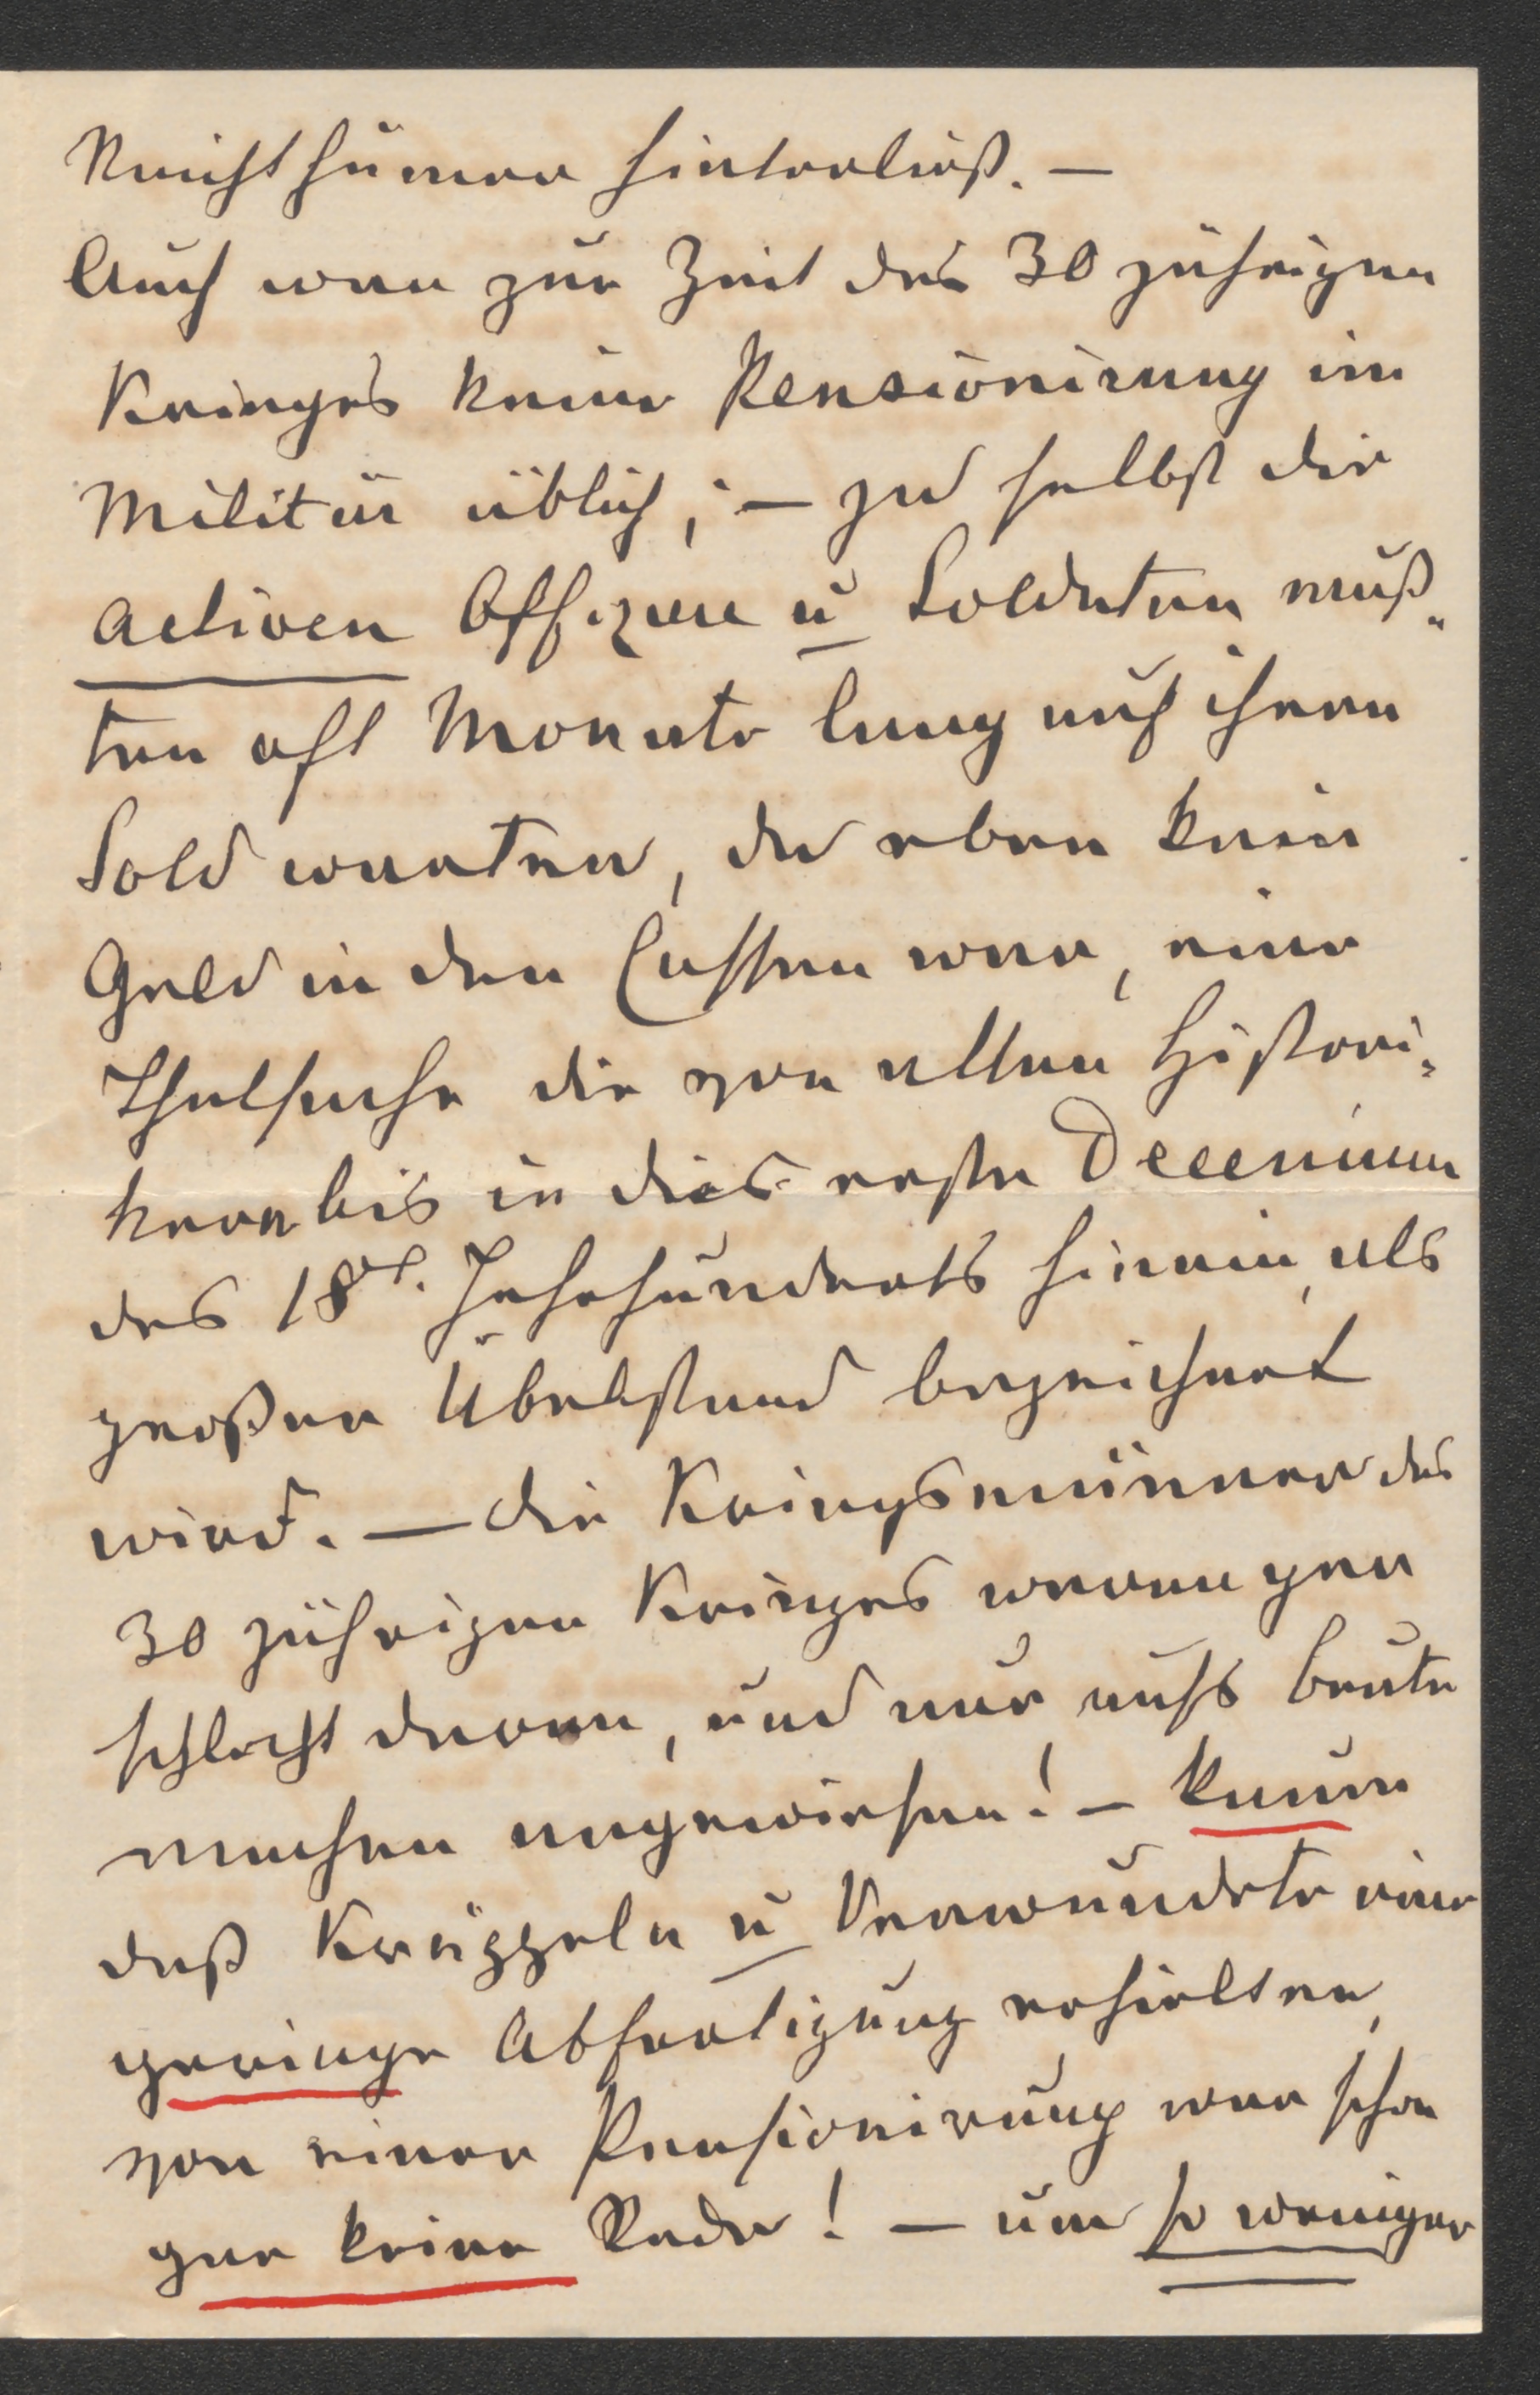 Reichthümer hinterließ. —
Auch war zur Zeit des 30 jährigen
Krieges keine Pensionirung im
Militär üblich; — ja selbst die
activen Offiziere u Soldaten muß„
ten oft Monate lang auf ihren
Sold warten, da eben kein
Geld in den Cassen war, eine
Thatsache die von allen Histori„
kern bis in dies erste Decenium
des 18ten. Jahrhunderts hinein, als
großer Übelstand bezeichnet
wird. — Die Kriegsmänner des
30 jährigen Krieges waren gar
schlecht daran, und nur aufs Beute
machen angewiesen! — Kaum
daß Krüppeln u Verwundete eine
geringe Abfertigung erhielten,
von einer Pensionirung war schon
gar keine Rede! — um so weniger